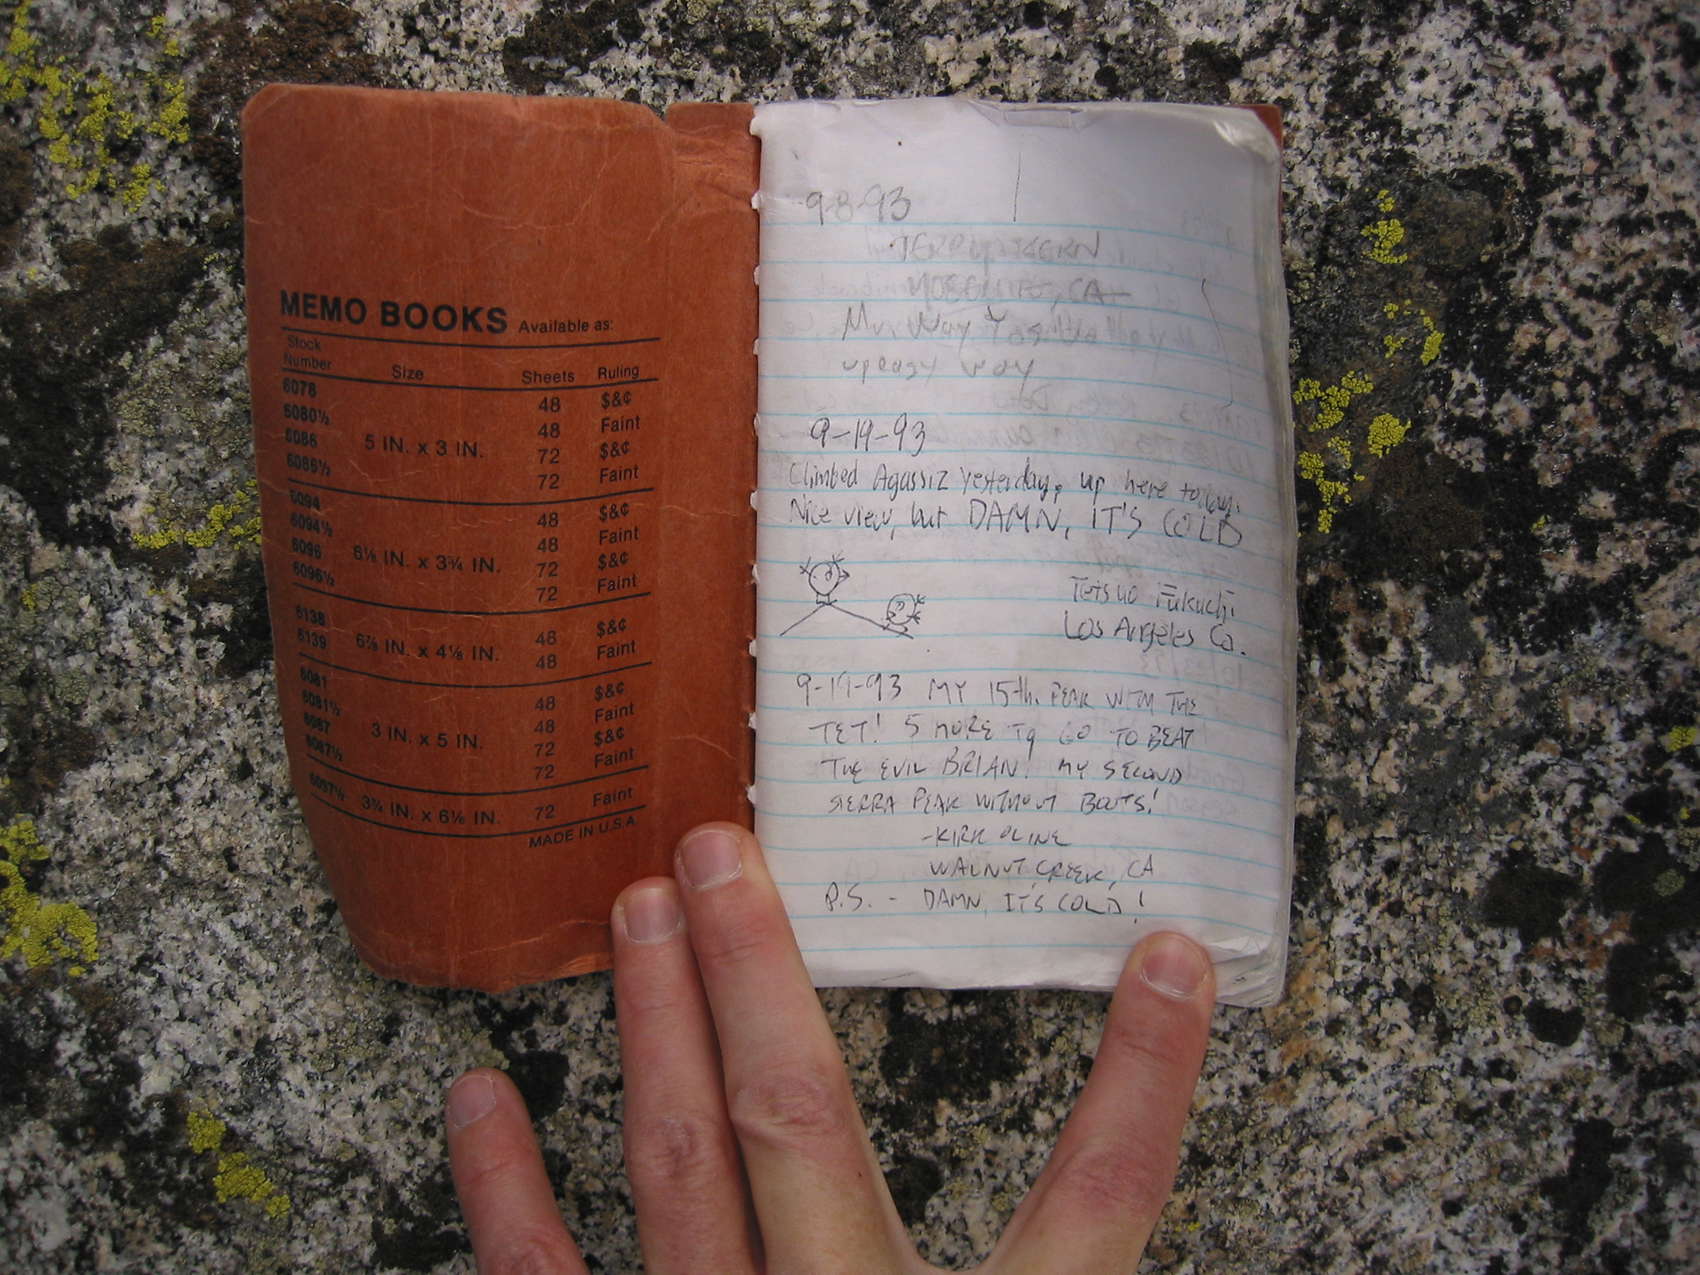 MEMO BOOKS Available as:
Stock Number Size Sheets Ruling
6078 48 $&¢
6080½ 48 Faint
6086 5 IN. x 3 IN. 72 $&¢
6086½ 72 Faint
6094 48 $&¢
6094½ 48 Faint
6096 6⅛ IN. x 3¾ IN. 72 $&¢
6096½ 72 Faint
6138 48 $&¢
6139 6⅞ IN. x 4⅛ IN. 48 Faint
6081 48 $&¢
6081½ 48 Faint
6087 3 IN. x 5 IN. 72 $&¢
6087½ 72 Faint
6097½ 3¾ IN. x 6⅛ IN. 72 Faint
MADE IN U.S.A.
9-8-93
TERRY
CA
Way
up easy way
9-19-93
Climbed Agassiz yesterday, up here today.
Nice view, but DAMN, IT'S COLD
Tetsuo Fukuchi
Los Angeles Ca.
9-19-93 MY 15th PEAK WITH THE
TET! 5 MORE TO GO TO BEAT
THE EVIL BRIAN! MY SECOND
SIERRA PEAK WITHOUT BOOTS!
-KIRK CLINE
WALNUT CREEK, CA
P.S. - DAMN, IT'S COLD!